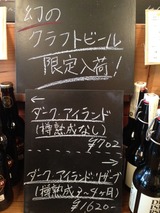 幻の
クラフトビール
限定入荷!
←
ダークアイランド
(樽熟成なし)
¥702
→
ダークアイランドリザーブ
(樽熟成3~9ヶ月)
¥1620-